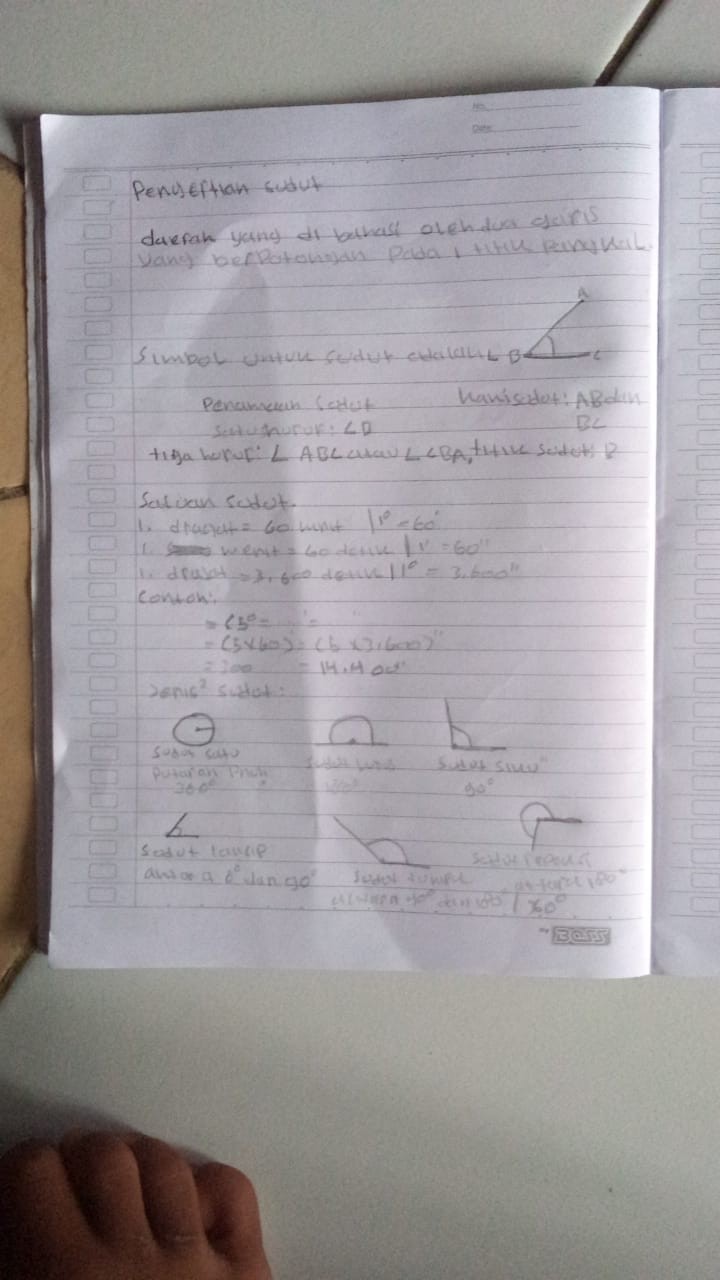 No.
Date
Pengertian sudut
daerah yang di batasi oleh dua garis
yang berpotongan pada 1 titik pangkal.
A
Simbol untuk sudut adalah L B C
Penamaan sudut kaki sudut: AB dan
satu huruf: ∠B BC
tiga huruf: ∠ ABC atau ∠ CBA, titik sudut: B
Satuan sudut.
1. drajat = 60 menit || 1° = 60'
1. menit = 60 detik || 1' = 60"
1. drajat = 3.600 detik || 1° = 3.600"
Contoh:
= (5° = ' = "
= (5×60)' = (5 ×3.600)"
= 300 = 14.400"
Jenis² sudut:
sudut satu sudut sudut siku"
putaran 180° 90°
360°
sudut lancip sudut tumpul sudut
antara 0° dan 90° antara 90° dan 180° antara 180° / 360°
BOSS